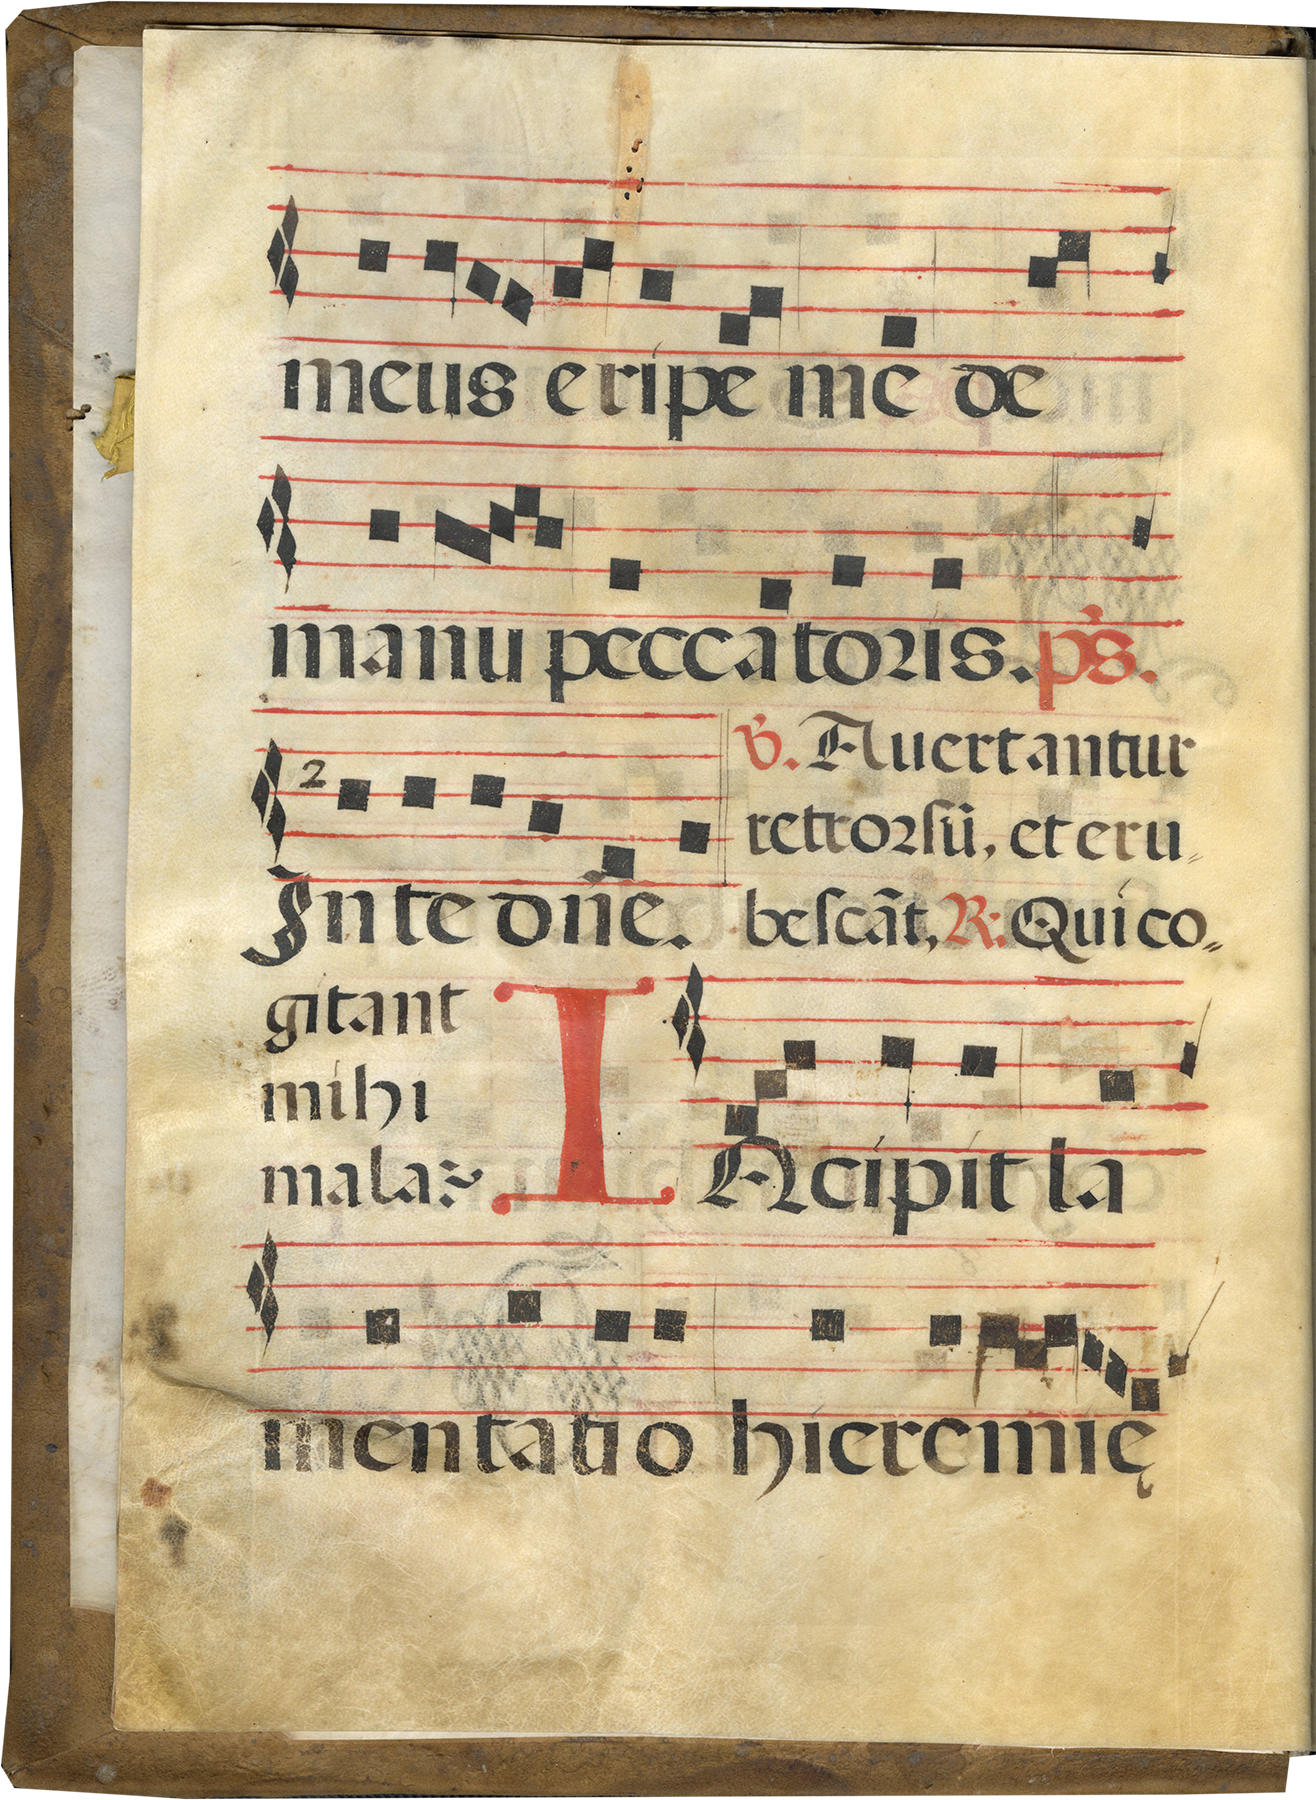 meus eripe me de
manu peccatoris. p̃s.
2
In te dñe.
℣. Auertantur
retrorsũ, et eru
bescãt, R: Qui co
gitant
mihi
mala
INcipit la
mentatio hieremię